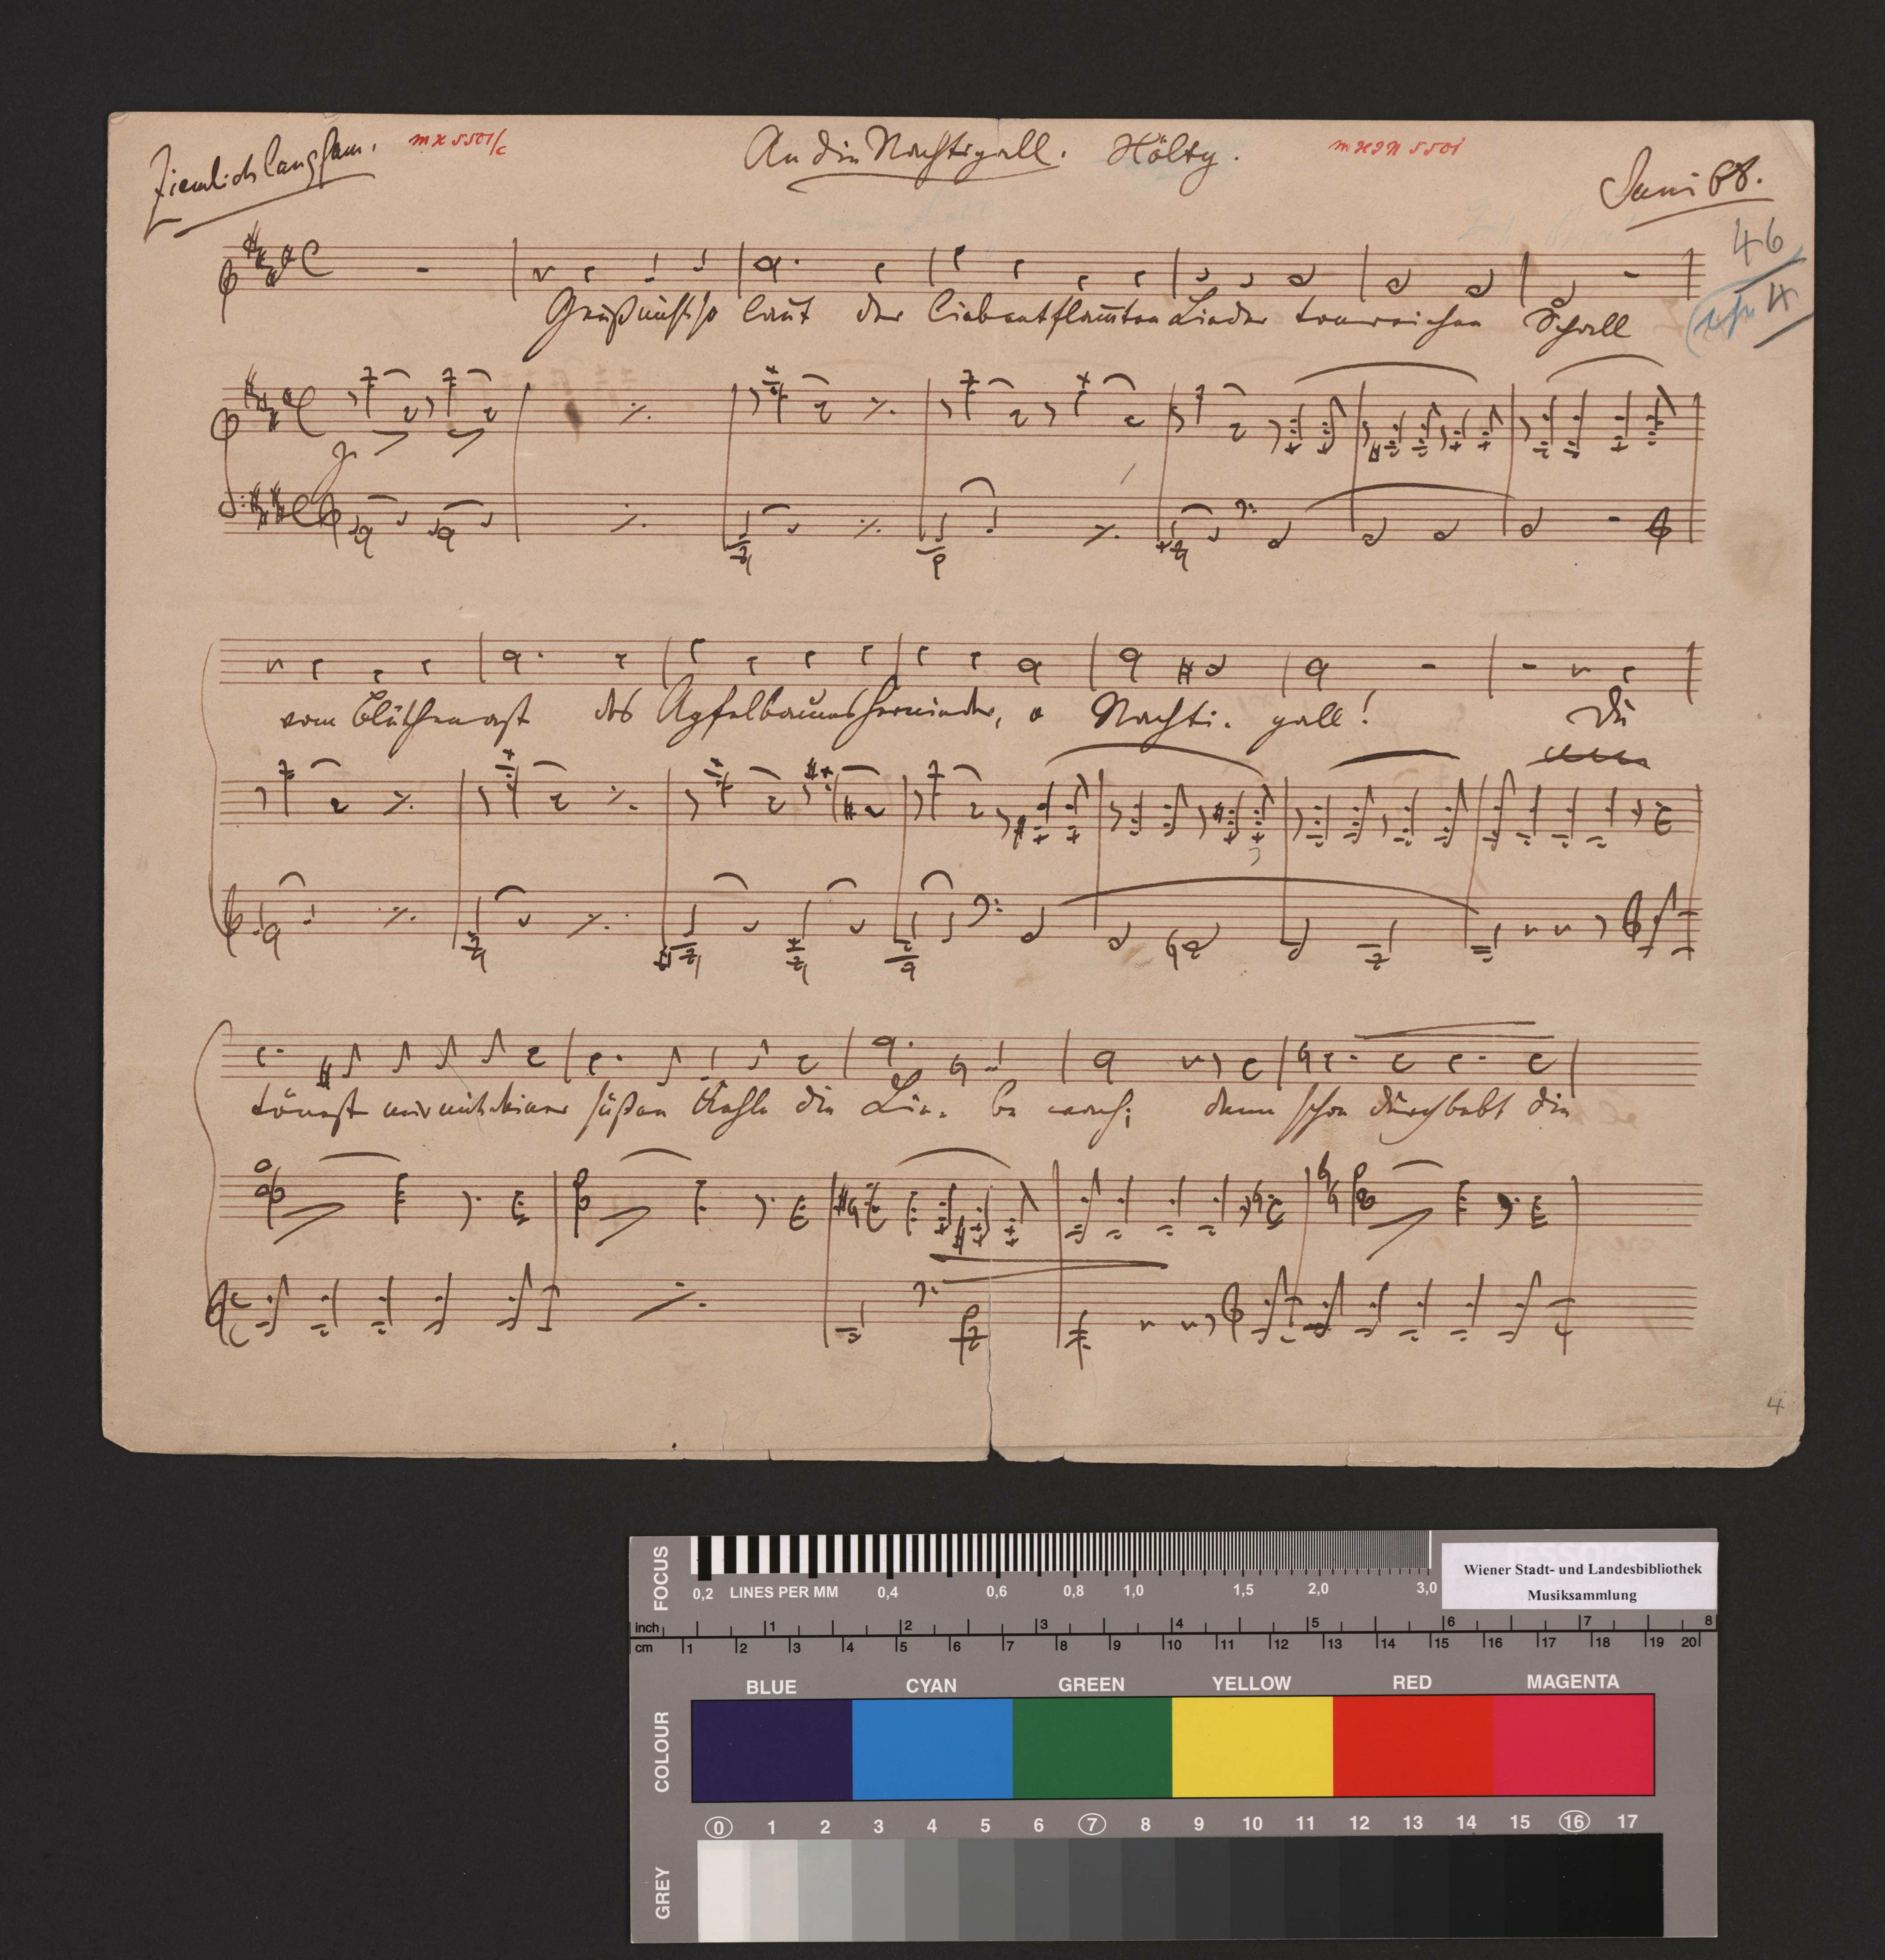 Ziemlich langsam.
An die Nachtigall. Hölty.
Juni 68.
46
4
Geuß nicht so laut der liebentflam̄ten Lieder tonreichen Schall
p
vom Blüthenast des Apfelbaums hernieder, o Nachti- gall! Du
tönest mir mit deiner süßen Kehle die Lie- be wach; denn schon durchbebt die
4
FOCUS
0,2 LINES PER MM 0,4 0,6 0,8 1,0 1,5 2,0 3,0
Wiener Stadt- und Landesbibliothek
Musiksammlung
inch 1 2 3 4 5 6 7 8
cm 1 2 3 4 5 6 7 8 9 10 11 12 13 14 15 16 17 18 19 20
COLOUR
BLUE CYAN GREEN YELLOW RED MAGENTA
GREY
0 1 2 3 4 5 6 7 8 9 10 11 12 13 14 15 16 17